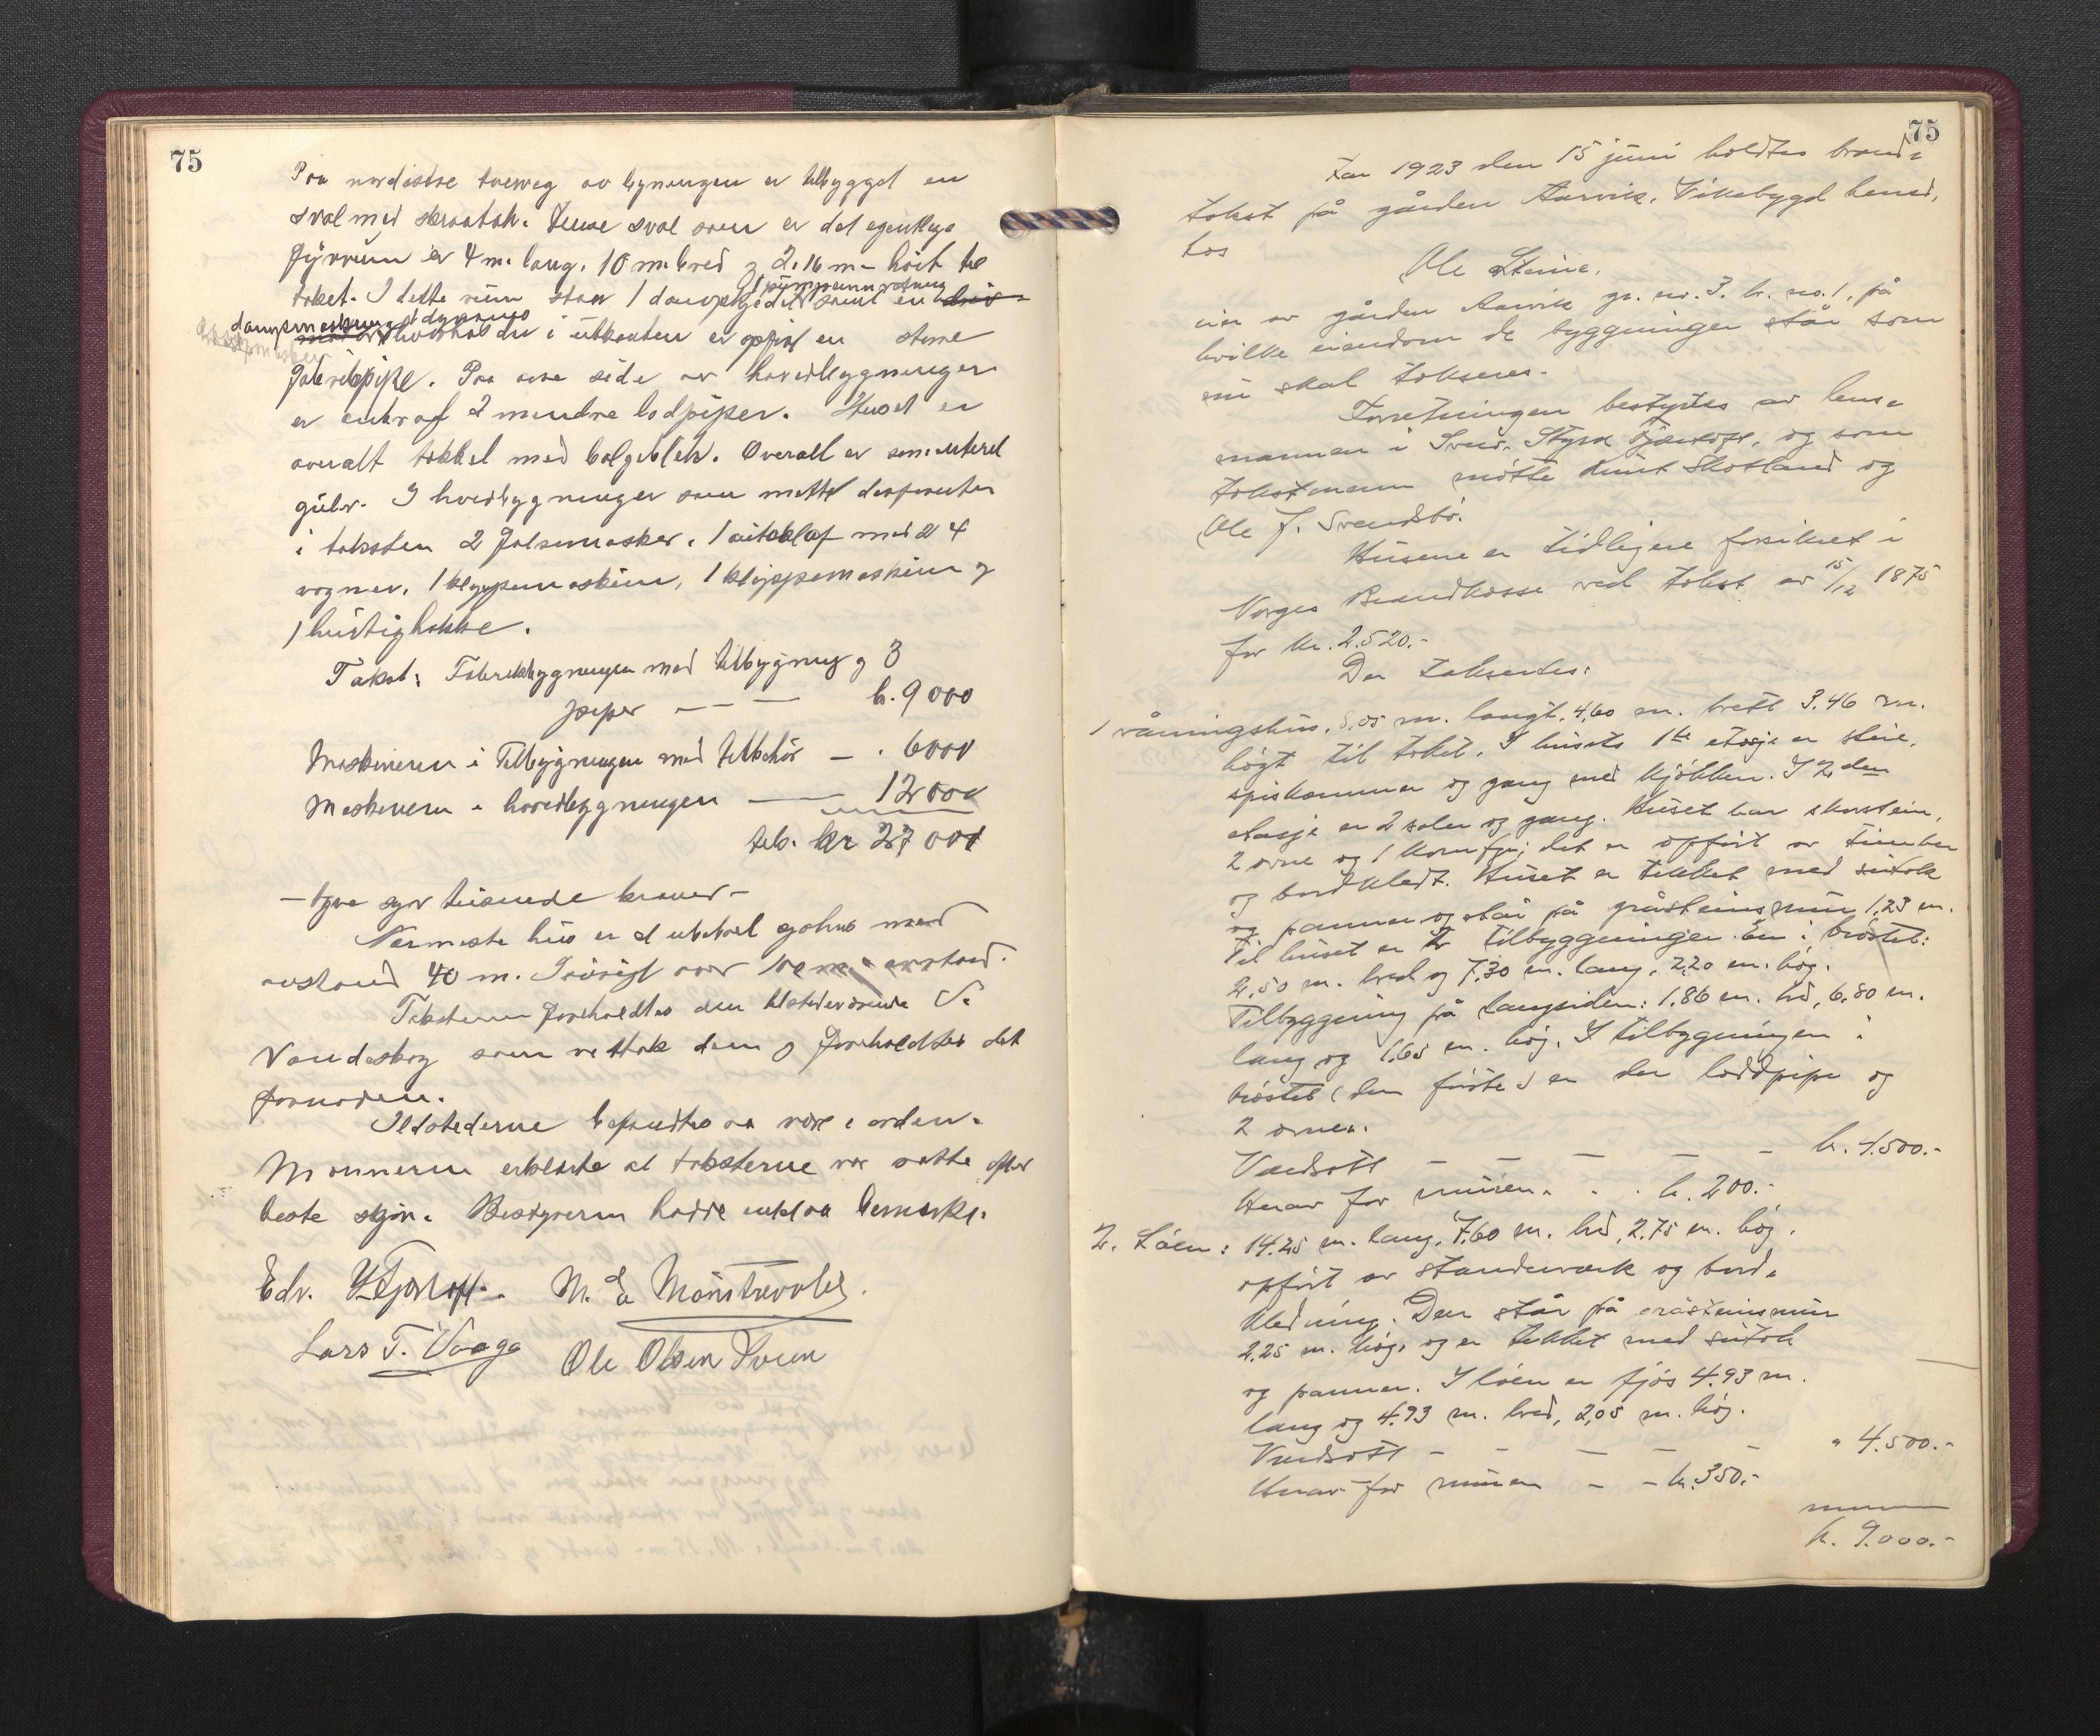 75
Paa nordistre tverveg av bygningen er tilbygget en
sval med skraatak. Denne sval som er det egentlige
fyrrum er 4 m. lang, 10 m. bred og 2.16 m. høit til
taket. I dette rum staar 1 dampkjedel samt en
dampmaskine 1 dynamo
hvorhos der i utkanten er opført en større
fabrikpipe. Paa øvre side av hovedbygningen
er endvidere 2 mindre lodpiper. Huset er
overalt tækket med bølgeblik. Overalt er sementeret
gulv. I hovedbygningen som
i taksten 2 falsemasker, 1 autoklaf med 24
vogner, 1 klippemaskin, 1 klippemaskin og
1 hurtighakke.
Takst: Fabrikbygningen med tilbygning og 3
piper — — — kr. 9000
Maskineriet i Tilbygningen med tilbehør — . 6000
Maskineri i hovedbygningen — 12000
tils. kr 27000
— tyve syv tusende kroner —
Nærmeste hus er et ubebod sjøhus med
avstand 40 m. I øvrigt over 100 m. avstand.
Taksterne foreholdtes den tilstedeværende S.
Vandaskog som vedtok dem og foreholdtes det
fornødne.
Ildstederne befandtes aa være i orden.
Mænnerne erklærte at taksterne var satte efter
beste skjøn. Bestyreren hadde intet aa bemerke.
Edv. M. L. Mønstrevold.
Lars T. Vaage Ole Olsen Sveen
75
Aar 1923 den 15 juni holdtes brand-
takst på gården Aarvik, Vikebygd herred,
hos
Ole Steine,
eier av gården Aarvik gr. nr. 3. br. no. 1, på
hvilke eiendom de byggninger står som
nu skal takseres.
Forretningen bestyrtes av lens-
mannen i Sveio, og som
takstmenn møtte Knut Skotland og
Ole J. Svendsbø.
Husene er tidligere forsikret i
Norges Brandkasse ved takst av 15/12 1875
for kr. 2.520.-
Der taksertes:
1 våningshus, 8,05 m. langt, 4,60 m. brett 3.46 m.
høgt til taket. I husets 1ste etasje er stue,
spiskammer og gang med kjøkken. I 2den
etasje er 2 saler og gang. Huset har skorstein,
2 ovne og 1 komfyr; det er opført av timber
og bordkledt. Huset er tekket med sutak
og panner og står på gråsteinsmur 1,23 m.
Til huset er 2 tilbyggeninger. En i brøstet:
2,50 m. bred og 7,30 m. lang, 2,20 m. høg.
Tilbyggening på langsiden: 1.86 m. brd, 6,80 m.
lang og 1,65 m. høg. I tilbygningen i
brøstet (den første) er der loddpipe og
2 ovner.
Verdsatt — — — — — kr. 4.500.-
Herav for muren . . . kr. 200.-
2. Løen: 14.25 m. lang, 7,60 m. brd, 2.75 m. høg.
opført av standerværk og bord-
kledning. Den står på gråsteinsmur
2,25 m. høg, og er tekket med sutak
og panner. I løen er fjøs 4.93 m.
lang og 4.93 m. bred, 2,05 m. høg.
Verdsatt — — — — — " 4.500.-
Herav for muren — — kr. 350.-
kr. 9.000.-